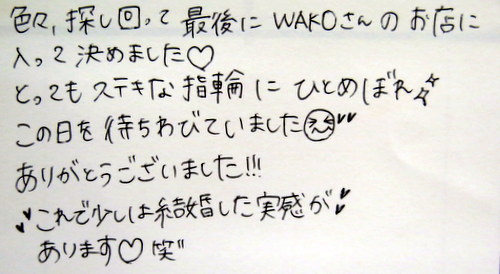 色々、探し回って最後にWAKOさんのお店に
入って決めました♡
とってもステキな指輪にひとめぼれ☆
この日を待ちわびていました
ありがとうございました!!!
♥これで少しは結婚した実感が♥
あります♡笑